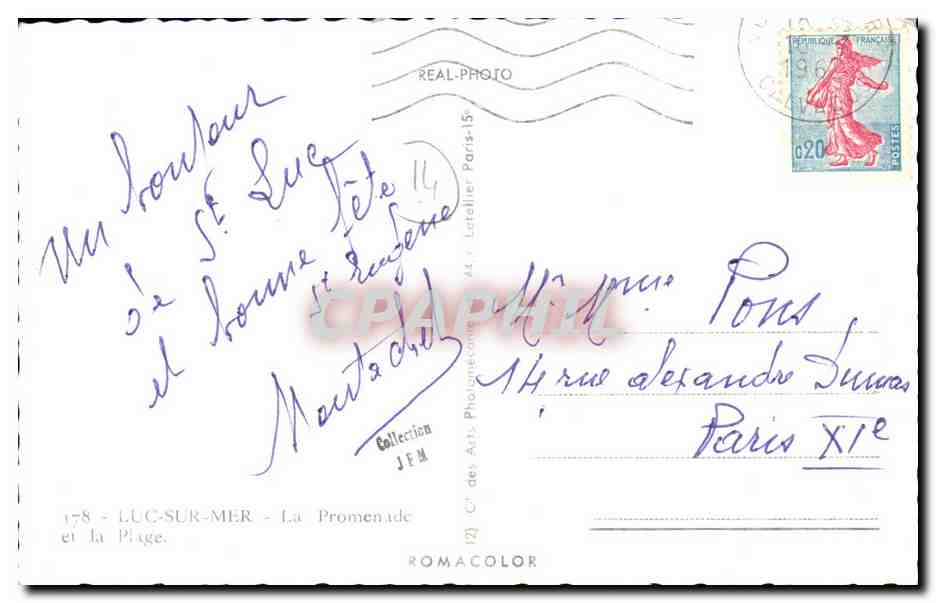 REAL-PHOTO
RÉPUBLIQUE FRANÇAISE
0,20
POSTES
CALVADOS
14
Un bonjour
de St Luc
et bonne fête
St Eugène
Mr Mme Pons
14 rue Alexandre Dumas
Paris XIe
Collection
JFM
178 - LUC-SUR-MER - La Promenade
et la Plage.
Cie des Arts Photomécaniques
Letellier Paris-15e
ROMACOLOR
CPAPHIL